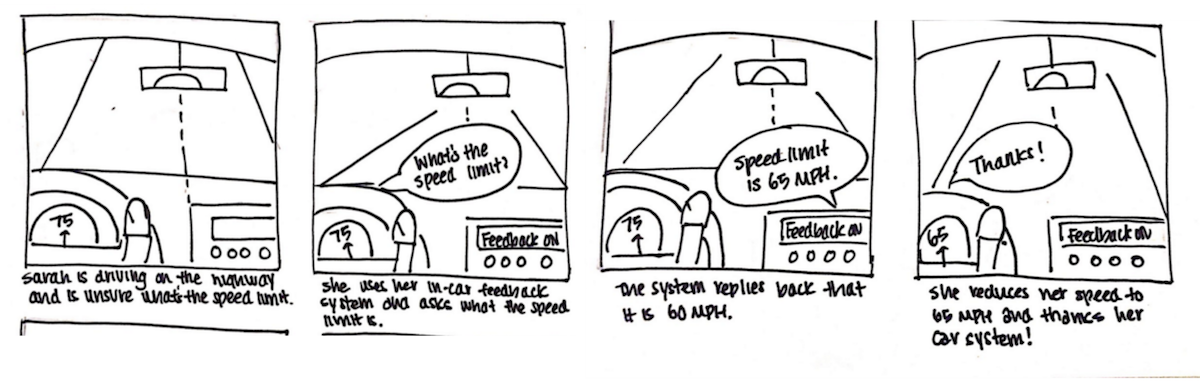 75
Sarah is driving on the highway
and is unsure what's the speed limit.
What's the
speed limit?
75
Feedback ON
She uses her in-car feedback
system and asks what the speed
limit is.
Speed limit
is 65 MPH.
75
Feedback ON
The system replies back that
it is 60 MPH.
Thanks!
65
Feedback ON
She reduces her speed to
65 MPH and thanks her
car system!